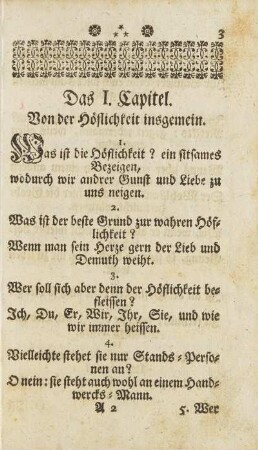 3
Das I. Capitel.
Von der Höflichkeit insgemein.
1.
Was ist die Höflichkeit? ein sitsames
Bezeigen,
wodurch wir andrer Gunst und Liebe zu
uns neigen.
2.
Was ist der beste Grund zur wahren Höf-
lichkeit?
Wenn man sein Herze gern der Lieb und
Demuth weiht.
3.
Wer soll sich aber denn der Höflichkeit be-
fleissen?
Ich, Du, Er, Wir, Ihr, Sie, und wie
wir immer heissen.
4.
Vielleichte stehet sie nur Stands-Perso-
nen an?
O nein: sie steht auch wohl an einem Hand-
wercks-Mann.
A 2 5. Wer